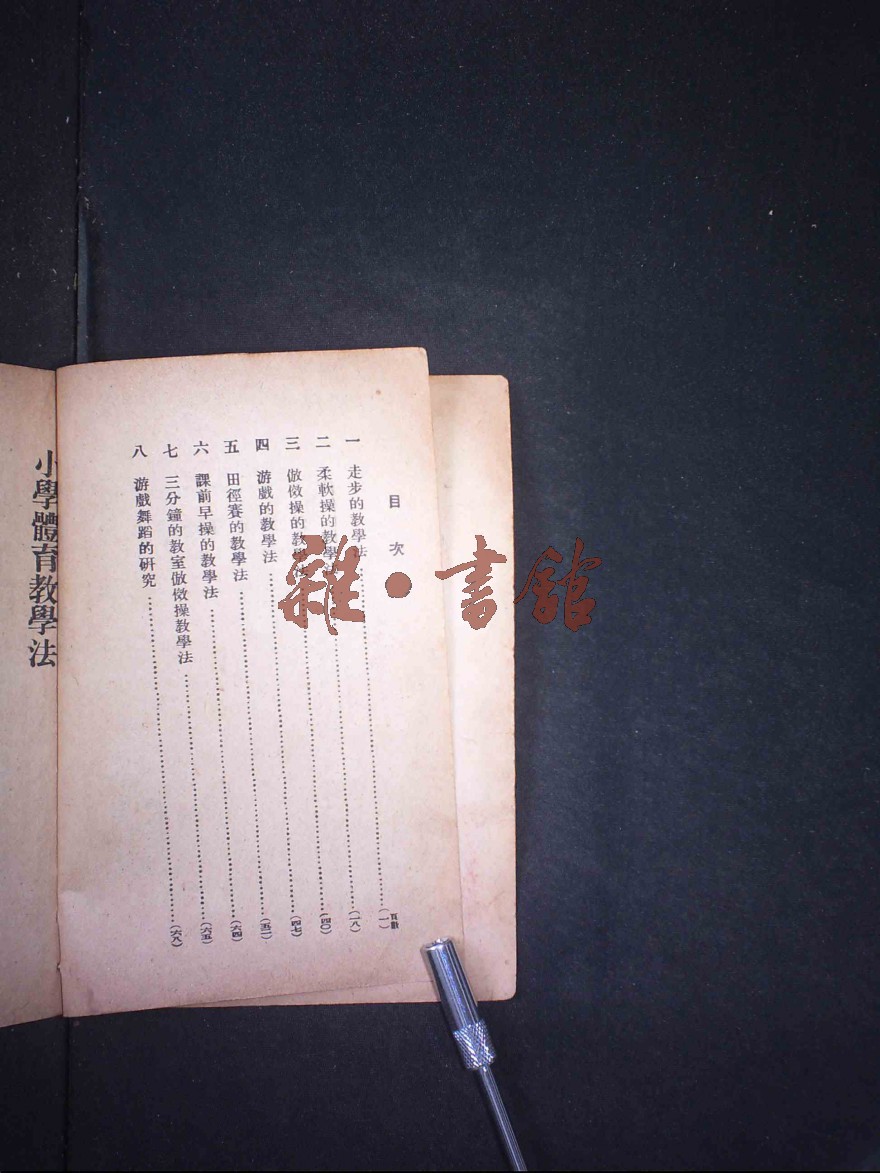 目次
頁數
一 走步的教學法……(一)
二 柔軟操的教學法……(一八)
三 倣傚操的教學法……(四〇)
四 游戲的教學法……(四七)
五 田徑賽的教學法……(五二)
六 課前早操的教學法……(六四)
七 三分鐘的教室倣傚操教學法……(六五)
八 游戲舞蹈的研究……(六八)
小學體育教學法
雜·書館